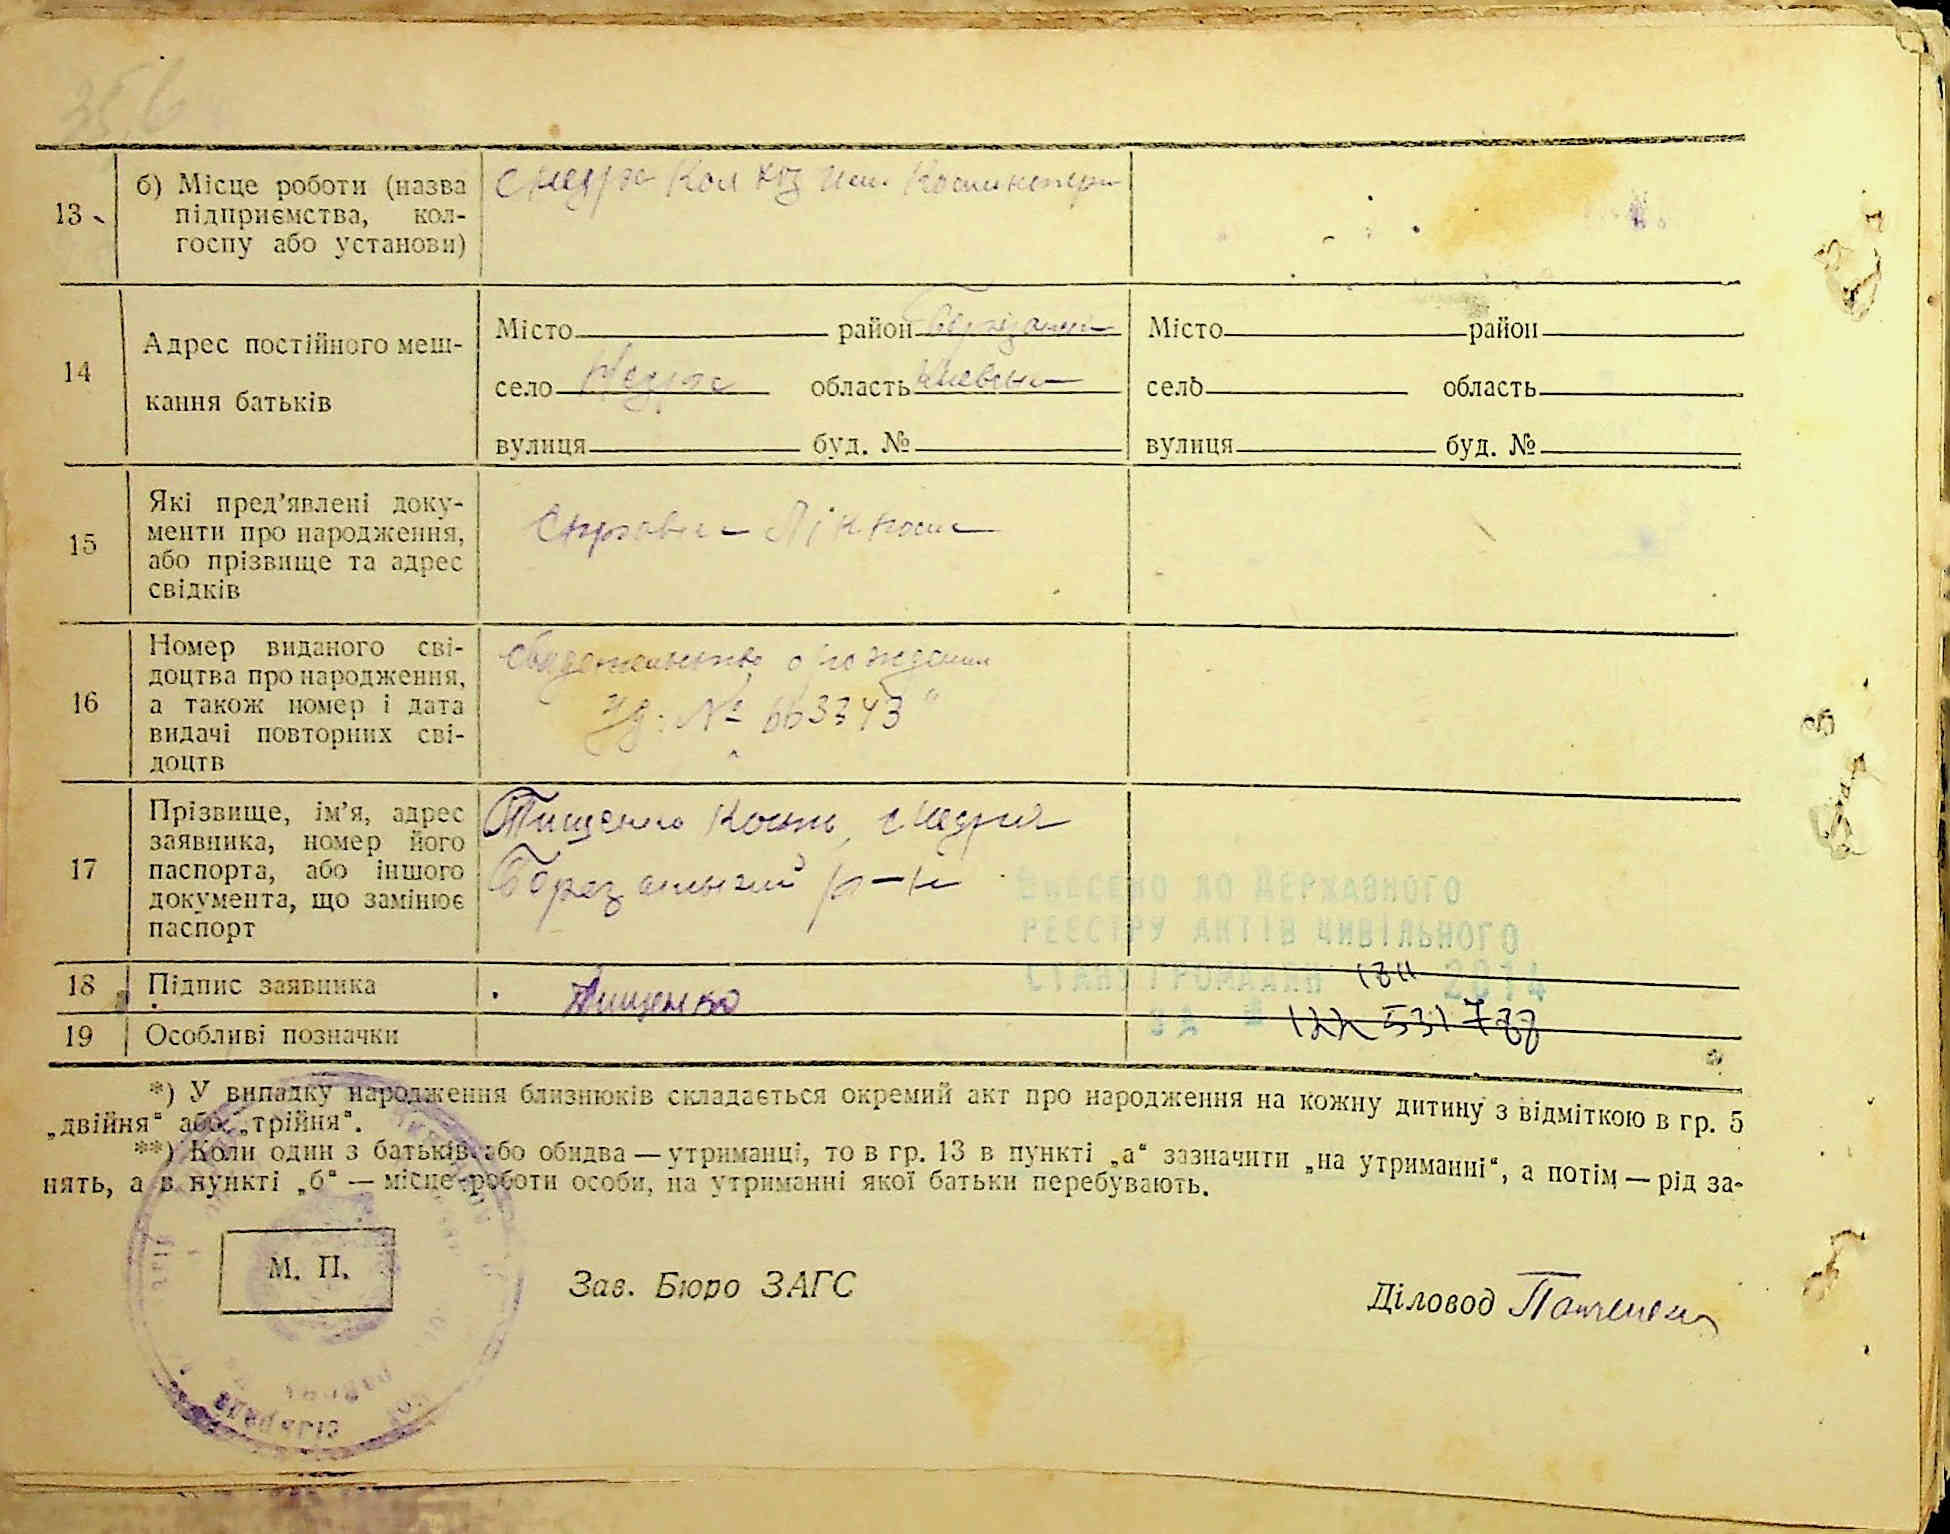 356
13
б) Місце роботи (назва
підприємства, кол-
госпу або установи)
с Недра Колхоз им. Коминтерн
14
Адрес постійного меш-
кання батьків
Місто район Березанський
село Недра область Киевська
вулиця буд. №
Місто район
село область
вулиця буд. №
15
Які пред’явлені доку-
менти про народження,
або прізвище та адрес
свідків
Справка
16
Номер виданого сві-
доцтва про народження,
а також номер і дата
видачі повторних сві-
доцтв
Свидетельство о рождении
№ 663343
17
Прізвище, ім’я, адрес
заявника, номер його
паспорта, або іншого
документа, що замінює
паспорт
Тищенко с Недра
Березанский р-н
ВНЕСЕНО ДО ДЕРЖАВНОГО
РЕЄСТРУ АКТІВ ЦИВІЛЬНОГО
СТАНУ ГРОМАДЯН 2014
ЗА №
18
Підпис заявника
Тищенко
19
Особливі позначки
*) У випадку народження близнюків складається окремий акт про народження на кожну дитину з відміткою в гр. 5
„двійня“ або „трійня“.
**) Коли один з батьків або обидва — утриманці, то в гр. 13 в пункті „а“ зазначити „на утриманні“, а потім — рід за-
нять, а в пункті „б“ — місце роботи особи, на утриманні якої батьки перебувають.
М. П.
Зав. Бюро ЗАГС
Діловод